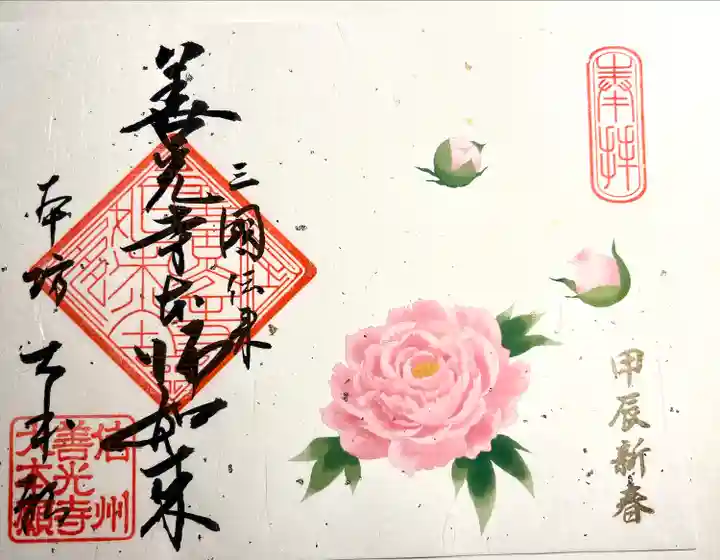 奉拝
甲辰新春
三國伝来
善光寺本師如来
本坊 大本願
信州
善光寺
大本願